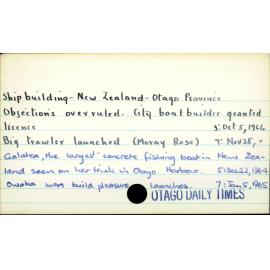 Shipbuilding - New Zealand - Otago Province
Objections overruled. City boatbuilder granted
licence 3: Oct 5, 1964
Big trawler launched (Moray Rose) 7: Nov 28, "
Galatea, the largest concrete fishing boat in New Zea-
land seen on her trials in Otago Harbour. 5: Dec 22, 1964
Owaka man build pleasure launches. 7: Jan 5, 1965
OTAGO DAILY TIMES